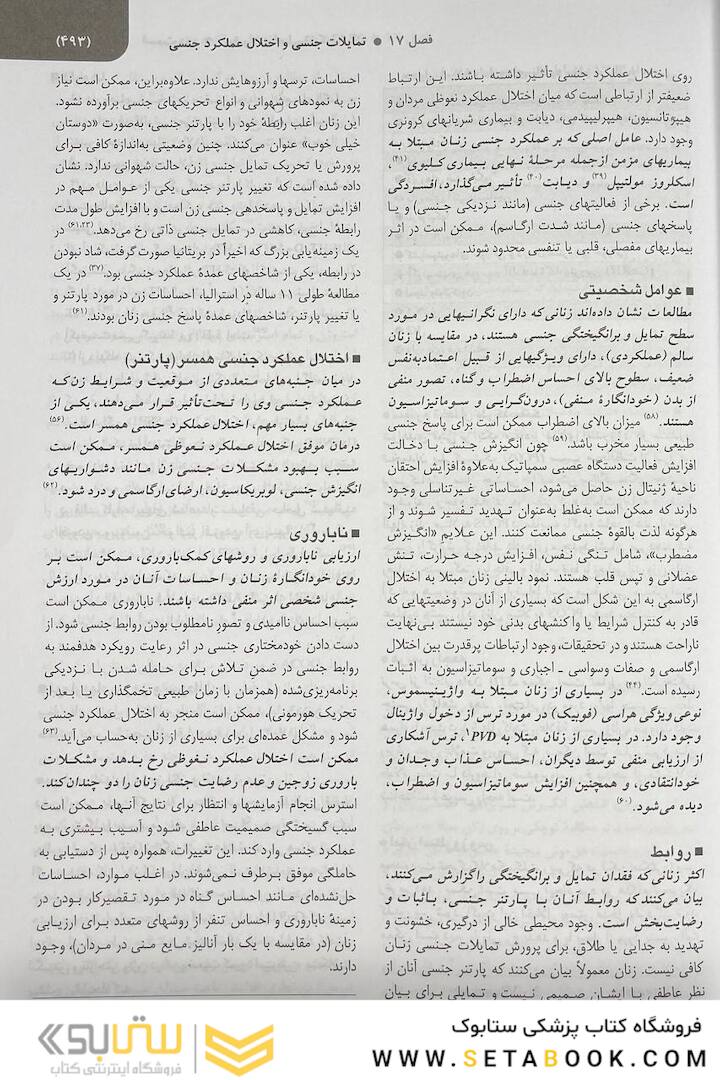 فصل ۱۷ ● تمایلات جنسی و اختلال عملکرد جنسی
(۴۹۳)
روی اختلال عملکرد جنسی تأثیر داشته باشند. این ارتباط
ضعیفتر از ارتباطی است که میان اختلال عملکرد نعوظی مردان و
هیپوتانسیون، هیپرلیپیدمی، دیابت و بیماری شریانهای کرونری
وجود دارد. عامل اصلی‌که بر عملکرد جنسی زنان مبتلا به
بیماریهای مزمن ازجمله مرحلهٔ نهایی بیماری کلیوی (۴۱)،
اسکلروز مولتیپل (۳۹) و دیابت (۴۰) تأثیر می‌گذارد، افسردگی
است. برخی از فعالیتهای جنسی (مانند نزدیکی جنسی) و یا
پاسخهای جنسی (مانند شدت ارگاسم)، ممکن است در اثر
بیماریهای مفصلی، قلبی یا تنفسی محدود شوند.
■ عوامل شخصیتی
مطالعات نشان داده‌اند زنانی که دارای نگرانیهایی در مورد
سطح تمایل و برانگیختگی جنسی هستند، در مقایسه با زنان
سالم (عملکردی)، دارای ویژگیهایی از قبیل اعتمادبه‌نفس
ضعیف، سطوح بالای احساس اضطراب و گناه، تصور منفی
از بدن (خودانگارهٔ منفی)، درون‌گرایی و سوماتیزاسیون
هستند. (۵۸) میزان بالای اضطراب ممکن است برای پاسخ جنسی
طبیعی بسیار مخرب باشد. (۵۹) چون انگیزش جنسی با دخالت
افزایش فعالیت دستگاه عصبی سمپاتیک به‌علاوهٔ افزایش احتقان
ناحیهٔ ژنیتال زن حاصل می‌شود، احساساتی غیرتناسلی وجود
دارند که ممکن است به‌غلط به‌عنوان تهدید تفسیر شوند و از
هرگونه لذت بالقوهٔ جنسی ممانعت کنند. این علایم «انگیزش
مضطرب»، شامل تنگی نفس، افزایش درجه حرارت، تنش
عضلانی و تپس قلب هستند. نمود بالینی زنان مبتلا به اختلال
ارگاسمی به این شکل است که بسیاری از آنان در وضعیتهایی که
قادر به کنترل شرایط یا واکنشهای بدنی خود نیستند بی‌نهایت
ناراحت هستند و در تحقیقات، وجود ارتباطات پرقدرت بین اختلال
ارگاسمی و صفات وسواسی ـ اجباری و سوماتیزاسیون به اثبات
رسیده است. (۴۴) در بسیاری از زنان مبتلا به واژینیسموس،
نوعی ویژگی هراسی (فوبیک) در مورد ترس از دخول واژینال
وجود دارد. در بسیاری از زنان مبتلا به PVD۱، ترس آشکاری
از ارزیابی منفی توسط دیگران، احساس عذاب وجدان و
خودانتقادی، و همچنین افزایش سوماتیزاسیون و اضطراب،
دیده می‌شود. (۶۰)
■ روابط
اکثر زنانی که فقدان تمایل و برانگیختگی راگزارش می‌کنند،
بیان می‌کنند که روابط آنان با پارتنر جنسی، باثبات و
رضایت‌بخش است. وجود محیطی خالی از درگیری، خشونت و
تهدید به جدایی یا طلاق، برای پرورش تمایلات جنسی زنان
کافی نیست. زنان معمولاً بیان می‌کنند که پارتنر جنسی آنان از
نظر عاطفی با ایشان صمیمی نیست و تمایلی برای بیان
احساسات، ترسها و آرزوهایش ندارد. علاوه‌براین، ممکن است نیاز
زن به نمودهای شهوانی و انواع تحریکهای جنسی برآورده نشود.
این زنان اغلب رابطهٔ خود را با پارتنر جنسی، به‌صورت «دوستان
خیلی خوب» عنوان می‌کنند. چنین وضعیتی به‌اندازهٔ کافی برای
پرورش یا تحریک تمایل جنسی زن، حالت شهوانی ندارد. نشان
داده شده است که تغییر پارتنر جنسی یکی از عوامل مهم در
افزایش تمایل و پاسخدهی جنسی زن است و با افزایش طول مدت
رابطهٔ جنسی، کاهشی در تمایل جنسی ذاتی رخ می‌دهد. (۶۱،۲۳) در
یک زمینه‌یابی بزرگ که اخیراً در بریتانیا صورت گرفت، شاد نبودن
در رابطه، یکی از شاخصهای عمدهٔ عملکرد جنسی بود. (۳۷) در یک
مطالعهٔ طولی ۱۱ ساله در استرالیا، احساسات زن در مورد پارتنر و
یا تغییر پارتنر، شاخصهای عمدهٔ پاسخ جنسی زنان بودند. (۶۱)
■ اختلال عملکرد جنسی همسر (پارتنر)
در میان جنبه‌های متعددی از موقعیت و شرایط زن‌که
عملکرد جنسی وی را تحت‌تأثیر قرار می‌دهند، یکی از
جنبه‌های بسیار مهم، اختلال عملکرد جنسی همسر است. (۵۶)
درمان موفق اختلال عملکرد نعوظی همسر، ممکن است
سبب بهبود مشکلات جنسی زن مانند دشواریهای
انگیزش جنسی، لوبریکاسیون، ارضای ارگاسمی و درد شود. (۶۲)
■ ناباروری
ارزیابی ناباروری و روشهای کمک‌باروری، ممکن است بر
روی خودانگارهٔ زنان و احساسات آنان در مورد ارزش
جنسی شخصی اثر منفی داشته باشند. ناباروری ممکن است
سبب احساس ناامیدی و تصور نامطلوب بودن روابط جنسی شود. از
دست دادن خودمختاری جنسی در اثر رعایت رویکرد هدفمند به
روابط جنسی در ضمن تلاش برای حامله شدن با نزدیکی
برنامه‌ریزی‌شده (همزمان با زمان طبیعی تخمگذاری یا بعد از
تحریک هورمونی)، ممکن است منجر به اختلال عملکرد جنسی
شود و مشکل عمده‌ای برای بسیاری از زنان به‌حساب می‌آید. (۶۳)
ممکن است اختلال عملکرد نعوظی رخ بدهد و مشکلات
باروری زوجین و عدم رضایت جنسی زنان را دو چندان‌کند.
استرس انجام آزمایشها و انتظار برای نتایج آنها، ممکن است
سبب گسیختگی صمیمیت عاطفی شود و آسیب بیشتری به
عملکرد جنسی وارد کند. این تغییرات، همواره پس از دستیابی به
حاملگی موفق برطرف نمی‌شوند. در اغلب موارد، احساسات
حل‌نشده‌ای مانند احساس گناه در مورد تقصیرکار بودن در
زمینهٔ ناباروری و احساس تنفر از روشهای متعدد برای ارزیابی
زنان (در مقایسه با یک بار آنالیز مایع منی در مردان)، وجود
دارند.
فروشگاه کتاب پزشکی ستابوک
WWW.SETABOOK.COM
ستابوک
فروشگاه اینترنتی کتاب